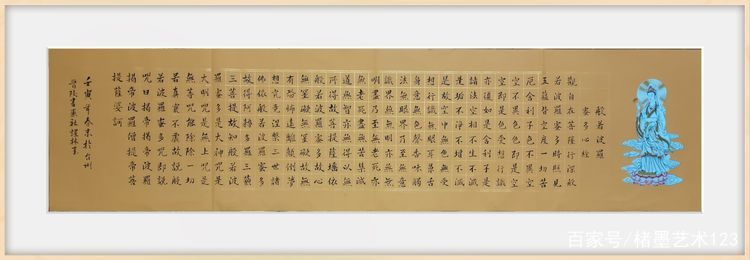 般若波羅
蜜多心經
觀自在菩薩行深般
若波羅蜜多時照見
五蘊皆空度一切苦
厄舍利子色不異空
空不異色色即是空
空即是色受想行識
亦復如是舍利子是
諸法空相不生不滅
不垢不淨不增不減
是故空中無色無受
想行識無眼耳鼻舌
身意無色聲香味觸
法無眼界乃至無意
識界無無明亦無無
明盡乃至無老死亦
無老死盡無苦集滅
道無智亦無得以無
所得故菩提薩埵依
般若波羅蜜多故心
無罣礙無罣礙故無
有恐怖遠離顛倒夢
想究竟涅槃三世諸
佛依般若波羅蜜多
故得阿耨多羅三藐
三菩提故知般若波
羅蜜多是大神咒是
大明咒是無上咒是
無等等咒能除一切
苦真實不虛故說般
若波羅蜜多咒即說
咒曰揭帝揭帝波羅
揭帝波羅僧揭帝菩
提薩婆訶
壬寅年春於台州
書藝社
百家号/楮墨艺术123